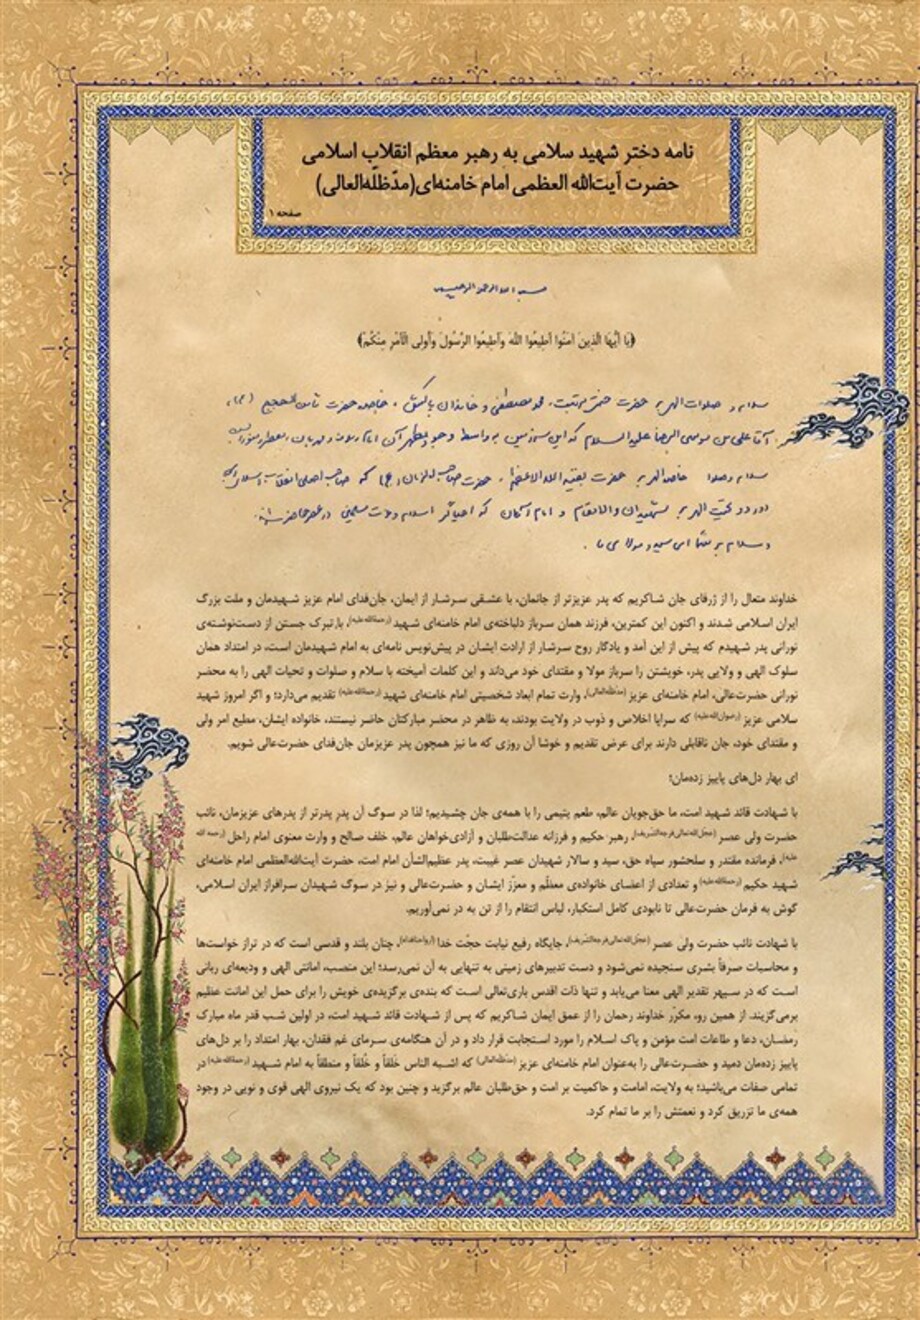 نامه دختر شهید سلامی به رهبر معظم انقلاب اسلامی
حضرت آیت‌الله العظمی امام خامنه‌ای(مدّظلّه‌العالی)
صفحه ۱
بسم الله الرحمن الرحیم
﴿یَا أَیُّهَا الَّذِینَ آمَنُوا أَطِیعُوا اللَّهَ وَأَطِیعُوا الرَّسُولَ وَأُولِی الْأَمْرِ مِنْكُمْ﴾
سلام و صلوات الهی بر حضرت ختمی مرتبت، محمد مصطفی و خاندان پاکش، خاصه حضرت ثامن الحجج (ع)،
آقا علی بن موسی الرضا علیه السلام که این سرزمین به واسطه وجود مطهر آن امام رئوف و مهربان، معطر و منور است
سلام و صلوات خاصه الهی بر حضرت بقیة الله الاعظم، حضرت صاحب الزمان (عج) که صاحب اصلی انقلاب اسلامی
درود و تحیت الهی بر شهیدان والامقام و امام که احیاگر اسلام و مسلمین در عصر حاضر
و سلام بر شما ای سید و مولای ما.
خداوند متعال را از ژرفای جان شاکریم که پدر عزیزتر از جانمان، با عشقی سرشار از ایمان، جان‌فدای امام عزیز شهیدمان و ملت بزرگ
ایران اسلامی شدند و اکنون این کمترین، فرزند همان سرباز دلباخته‌ی امام خامنه‌ای شهید (رحمةالله‌علیه)، با تبرک جستن از دست‌نوشته‌ی
نورانی پدر شهیدم که پیش از این آمد و یادگار روح سرشار از ارادت ایشان در پیش‌نویس نامه‌ای به امام شهیدمان است، در امتداد همان
سلوک الهی و ولایی پدر، خویشتن را سرباز مولا و مقتدای خود می‌داند و این کلمات آمیخته با سلام و صلوات و تحیات الهی را به محضر
نورانی حضرت‌عالی، امام خامنه‌ای عزیز (مدظله‌العالی)، وارث تمام ابعاد شخصیتی امام خامنه‌ای شهید (رحمةالله‌علیه) تقدیم می‌دارد؛ و اگر امروز شهید
سلامی عزیز (رضوان‌الله‌علیه) که سراپا اخلاص و ذوب در ولایت بودند، به ظاهر در محضر مبارکتان حاضر نیستند، خانواده ایشان، مطیع امر ولی
و مقتدای خود، جان ناقابلی دارند برای عرض تقدیم و خوشا آن روزی که ما نیز همچون پدر عزیزمان جان‌فدای حضرت‌عالی شویم.
ای بهار دل‌های پاییز زده‌مان؛
با شهادت قائد شهید امت، ما حق‌جویان عالم، طعم یتیمی را با همه‌ی جان چشیدیم؛ لذا در سوگ آن پدرِ پدرتر از پدرهای عزیزمان، نائب
حضرت ولی عصر (عجل‌الله‌تعالی‌فرجه‌الشریف)، رهبر حکیم و فرزانه عدالت‌طلبان و آزادی‌خواهان عالم، خلف صالح و وارث معنوی امام راحل (رحمة الله
علیه)، فرمانده مقتدر و سلحشور سپاه حق، سید و سالار شهیدان عصر غیبت، پدر عظیم‌الشأن امام امت، حضرت آیت‌الله‌العظمی امام خامنه‌ای
شهید حکیم (رحمةالله‌علیه) و تعدادی از اعضای خانواده‌ی معظّم و معزّز ایشان و حضرت‌عالی و نیز در سوگ شهیدان سرافراز ایران اسلامی،
گوش به فرمان حضرت‌عالی تا نابودی کامل استکبار، لباس انتقام را از تن به در نمی‌آوریم.
با شهادت نائب حضرت ولی عصر (عجل‌الله‌تعالی‌فرجه‌الشریف)، جایگاه رفیع نیابت حجّت خدا (ارواحنافداه)، چنان بلند و قدسی است که در تراز خواست‌ها
و محاسبات صرفاً بشری سنجیده نمی‌شود و دست تدبیرهای زمینی به تنهایی به آن نمی‌رسد؛ این منصب، امانتی الهی و ودیعه‌ای ربانی
است که در سپهر تقدیر الهی معنا می‌یابد و تنها ذات اقدس باری‌تعالی است که بنده‌ی برگزیده‌ی خویش را برای حمل این امانت عظیم
برمی‌گزیند. از همین رو، مکرّر خداوند رحمان را از عمق ایمان شاکریم که پس از شهادت قائد شهید امت، در اولین شب قدر ماه مبارک
رمضان، دعا و طاعات امت مؤمن و پاک اسلام را مورد استجابت قرار داد و در آن هنگامه‌ی سرمای غم فقدان، بهار امتداد را بر دل‌های
پاییز زده‌مان دمید و حضرت‌عالی را به‌عنوان امام خامنه‌ای عزیز (مدظله‌العالی) که اشبه الناس خَلقاً و خُلقاً و منطقاً به امام شهید (رحمةالله‌علیه) در
تمامی صفات می‌باشید؛ به ولایت، امامت و حاکمیت بر امت و حق‌طلبان عالم برگزید و چنین بود که یک نیروی الهی قوی و نویی در وجود
همه‌ی ما تزریق کرد و نعمتش را بر ما تمام کرد.